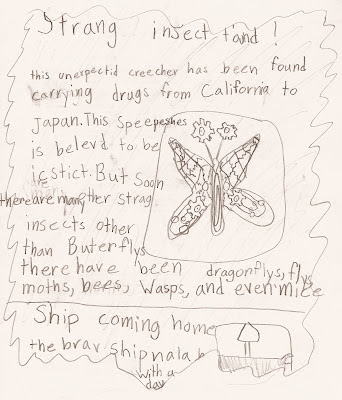 Strang insect fand!
this unexpectid creecher has been found
carrying drugs from California to
Japan. This speepeshes
is belevd to be
icstict. But soon
there are many other strag
insects other
than Buterflys
there have been dragonflys, flys
moths, bees, Wasps, and even mice
Ship coming home
the brav ship
with a
day